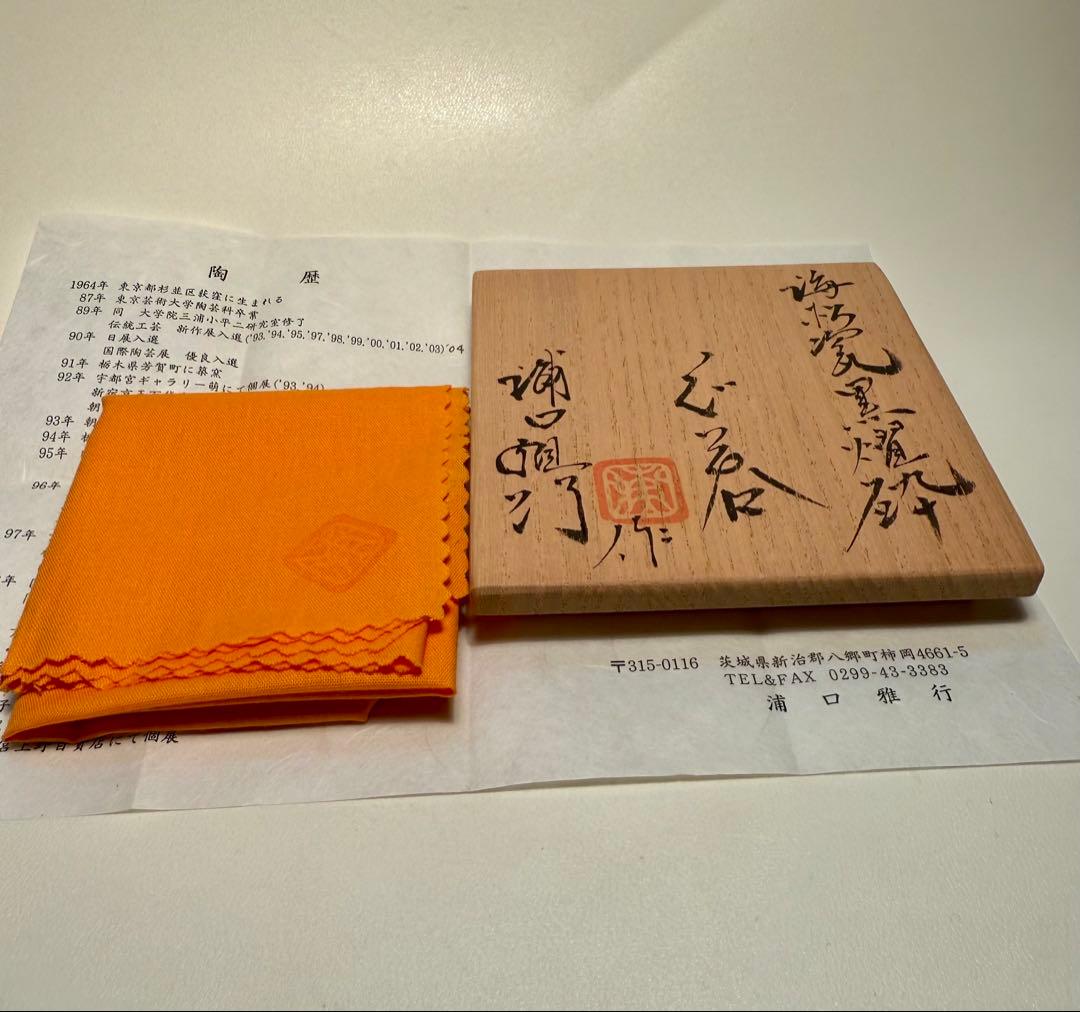 陶歴
1964年 東京都杉並区荻窪に生まれる
87年 東京芸術大学陶芸科卒業
89年 同 大学院三浦小平二研究室修了
伝統工芸 新作展入選('93.'94.'95.'97.'98.'99.'00.'01.'02.'03)'04
90年 日展入選
国際陶芸展 優良入選
91年 栃木県芳賀町に築窯
92年 宇都宮ギャラリー萌にて個展('93.'94)
朝
93年 朝
94年
95年
96年
97年
にて個展
海松瓷黒燿砕
ぐい呑
浦口雅行
作
浦
〒315-0116 茨城県新治郡八郷町柿岡4661-5
TEL&FAX 0299-43-3383
浦口雅行